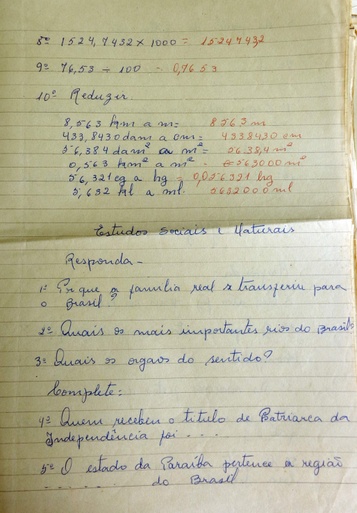 8º 1524,7432 x 1000 = 1524743,2
9º 76,53 ÷ 100 = 0,7653
10º Reduzir
8,563 km a m = 8563 m
433,8430 dam a cm = 4338430 cm
56,384 dam² a m² = 5638,4 m²
0,563 km² a m² = 563000 m²
56,321 cg a hg = 0,0056321 hg
5,632 kl a ml 5632000 ml
Estudos Sociais e Naturais
Responda -
1º Em que a família real se transferiu para
o Brasil?
2º Quais os mais importantes rios do Brasil?
3º Quais os orgãos do sentido?
Complete:
4º Quem recebeu o titulo de Patriarca da
Independência foi . . .
5º O estado da Paraíba pertence a região
. . . . . . do Brasil